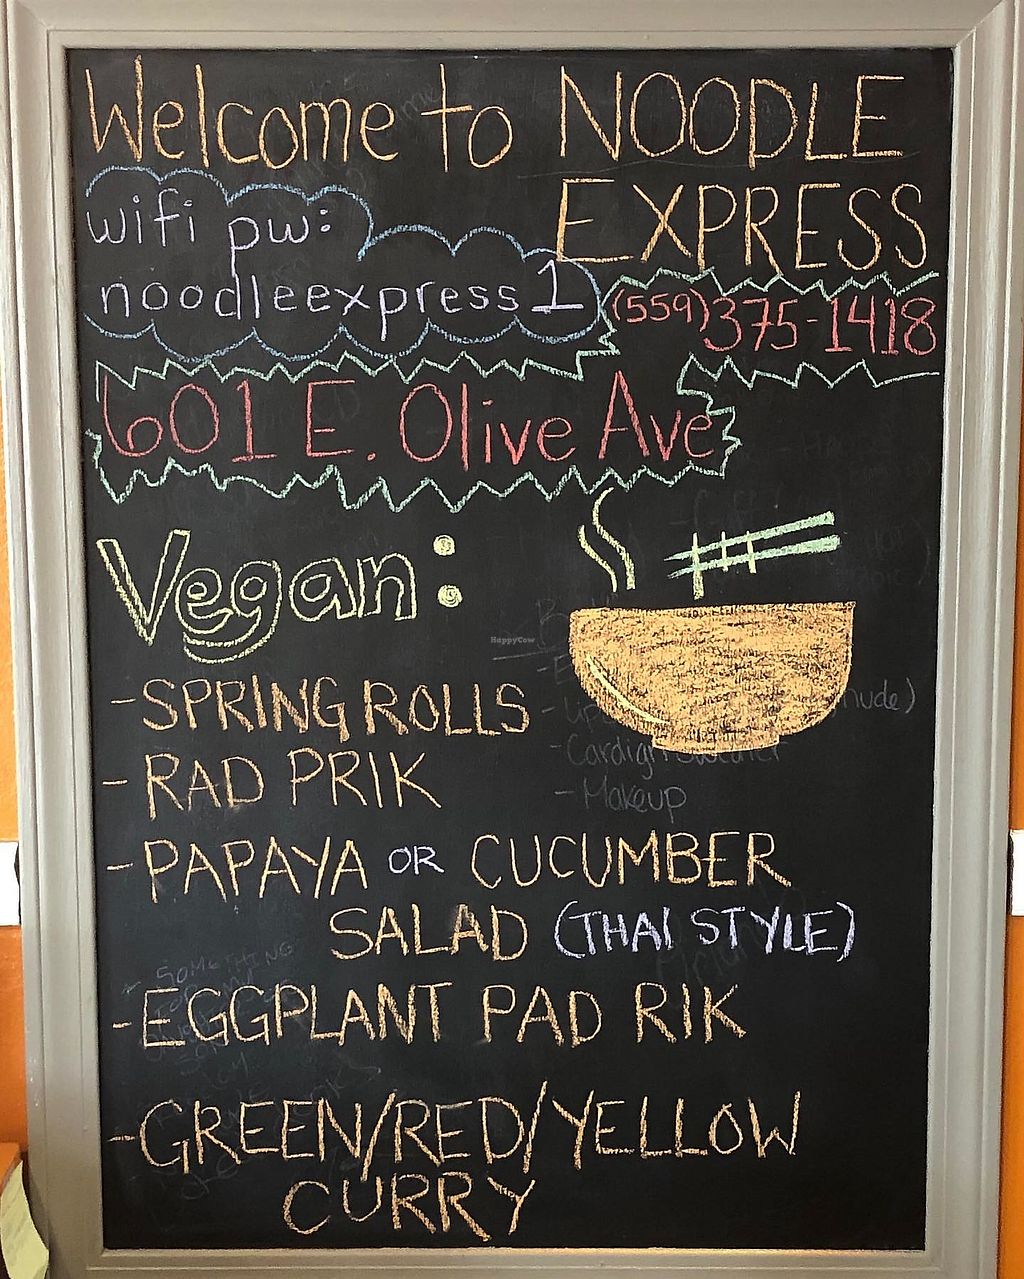 Welcome to NOODLE
EXPRESS
wifi pw:
noodleexpress1
(559)375-1418
601 E. Olive Ave
Vegan:
HappyCow
-SPRING ROLLS
-RAD PRIK
-PAPAYA OR CUCUMBER
SALAD (THAI STYLE)
-EGGPLANT PAD RIK
-GREEN/RED/YELLOW
CURRY
nude)
-Makeup
SOMETHING